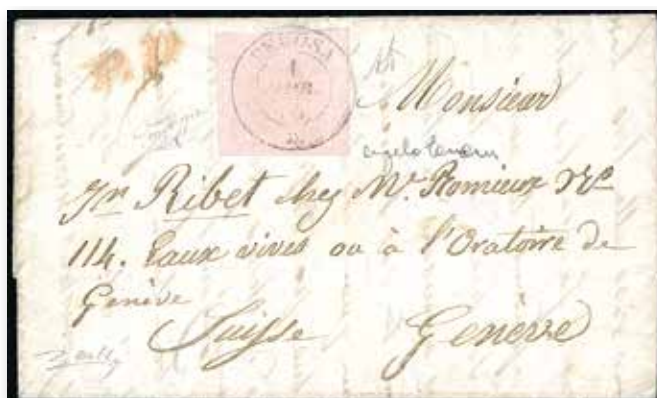 P.P.
PEROSA
1
Monsieur
Jn Ribet chez Mr. Romieux No
114. Eaux vives ou à l'Oratoire de
Genève
Suisse Genève